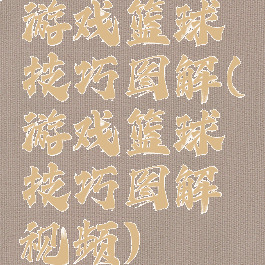 游戏篮球
技巧图解(
游戏篮球
技巧图解
视频)